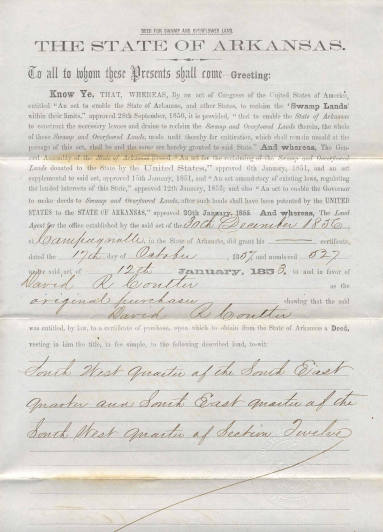 DEED FOR SWAMP AND OVERFLOWED LAND.
THE STATE OF ARKANSAS.
To all to whom these Presents shall come—Greeting:
Know Ye, THAT, WHEREAS, By an act of Congress of the United States of America,
entitled "An act to enable the State of Arkansas, and other States, to reclaim the 'Swamp Lands'
within their limits," approved 28th September, 1850, it is provided, "that to enable the State of Arkansas
to construct the necessary levees and drains to reclaim the Swamp and Overflowed Lands therein, the whole
of those Swamp and Overflowed Lands, made unfit thereby for cultivation, which shall remain unsold at the
passage of this act, shall be and the same are hereby granted to said State." And whereas, The Gen-
eral Assembly of the State of Arkansas passed "An act for the reclaiming of the Swamp and Overflowed Lands
donated to the State by the United States," approved 6th January, 1851, and an act
supplemental to said act, approved 11th January, 1851, and "An act amendatory of existing laws, regulating
the landed interests of this State," approved 12th January, 1853; and also "An act to enable the Governor
to make deeds to Swamp and Overflowed Lands, after such lands shall have been patented by the UNITED
STATES to the STATE OF ARKANSAS," approved 20th January, 1855. And whereas, The Land
Agent for the office established by the said act of the 30th December 1856
Champagnolle, in the State of Arkansas, did grant his — certificate,
dated the 17th day of October 1857, and numbered 527
under said act of 12th January, 1853, to and in favor of
David R Coulter as the
original purchaser showing that the said
David R Coulter
was entitled, by law, to a certificate of purchase, upon which to obtain from the State of Arkansas a Deed,
vesting in him the title, in fee simple, to the following described land, to-wit:
South West quarter of the South East
quarter and South East quarter of the
South West quarter of Section Twelve